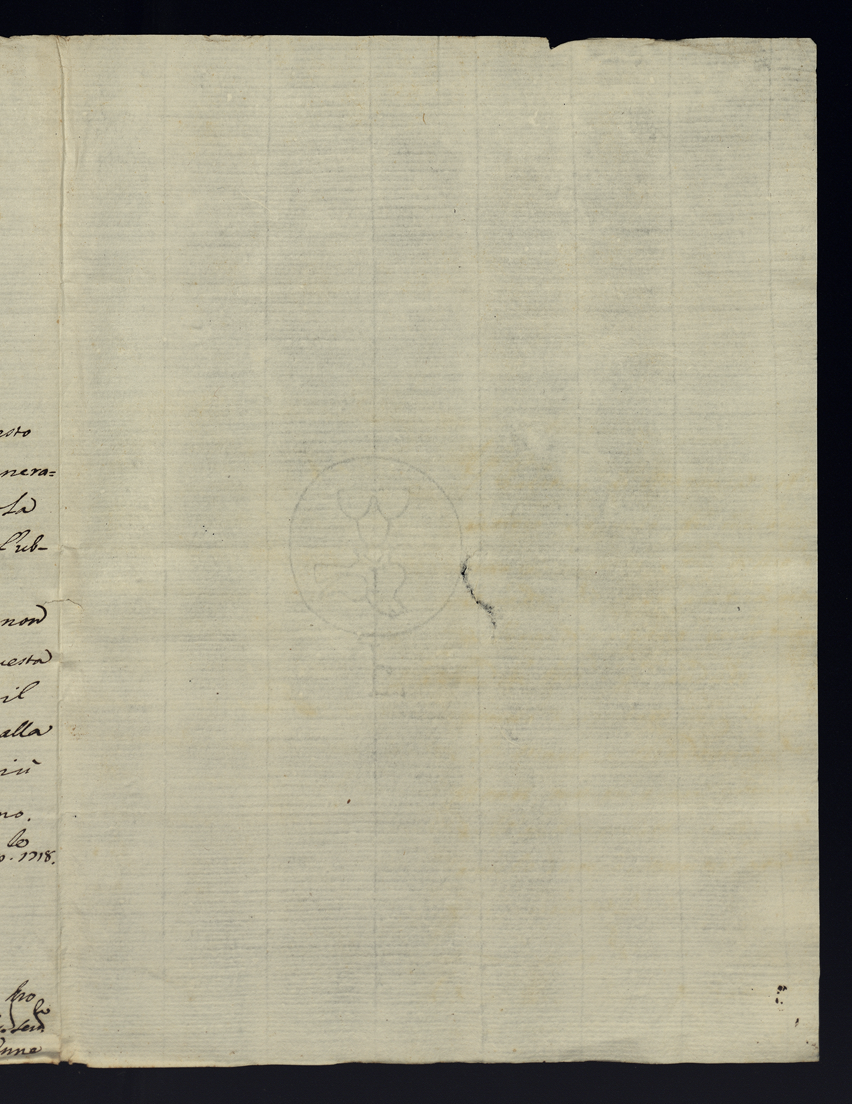 esto
nera=
La
l'ub-
non
uesta
il
alla
iù
no.
lo
o. 1718.